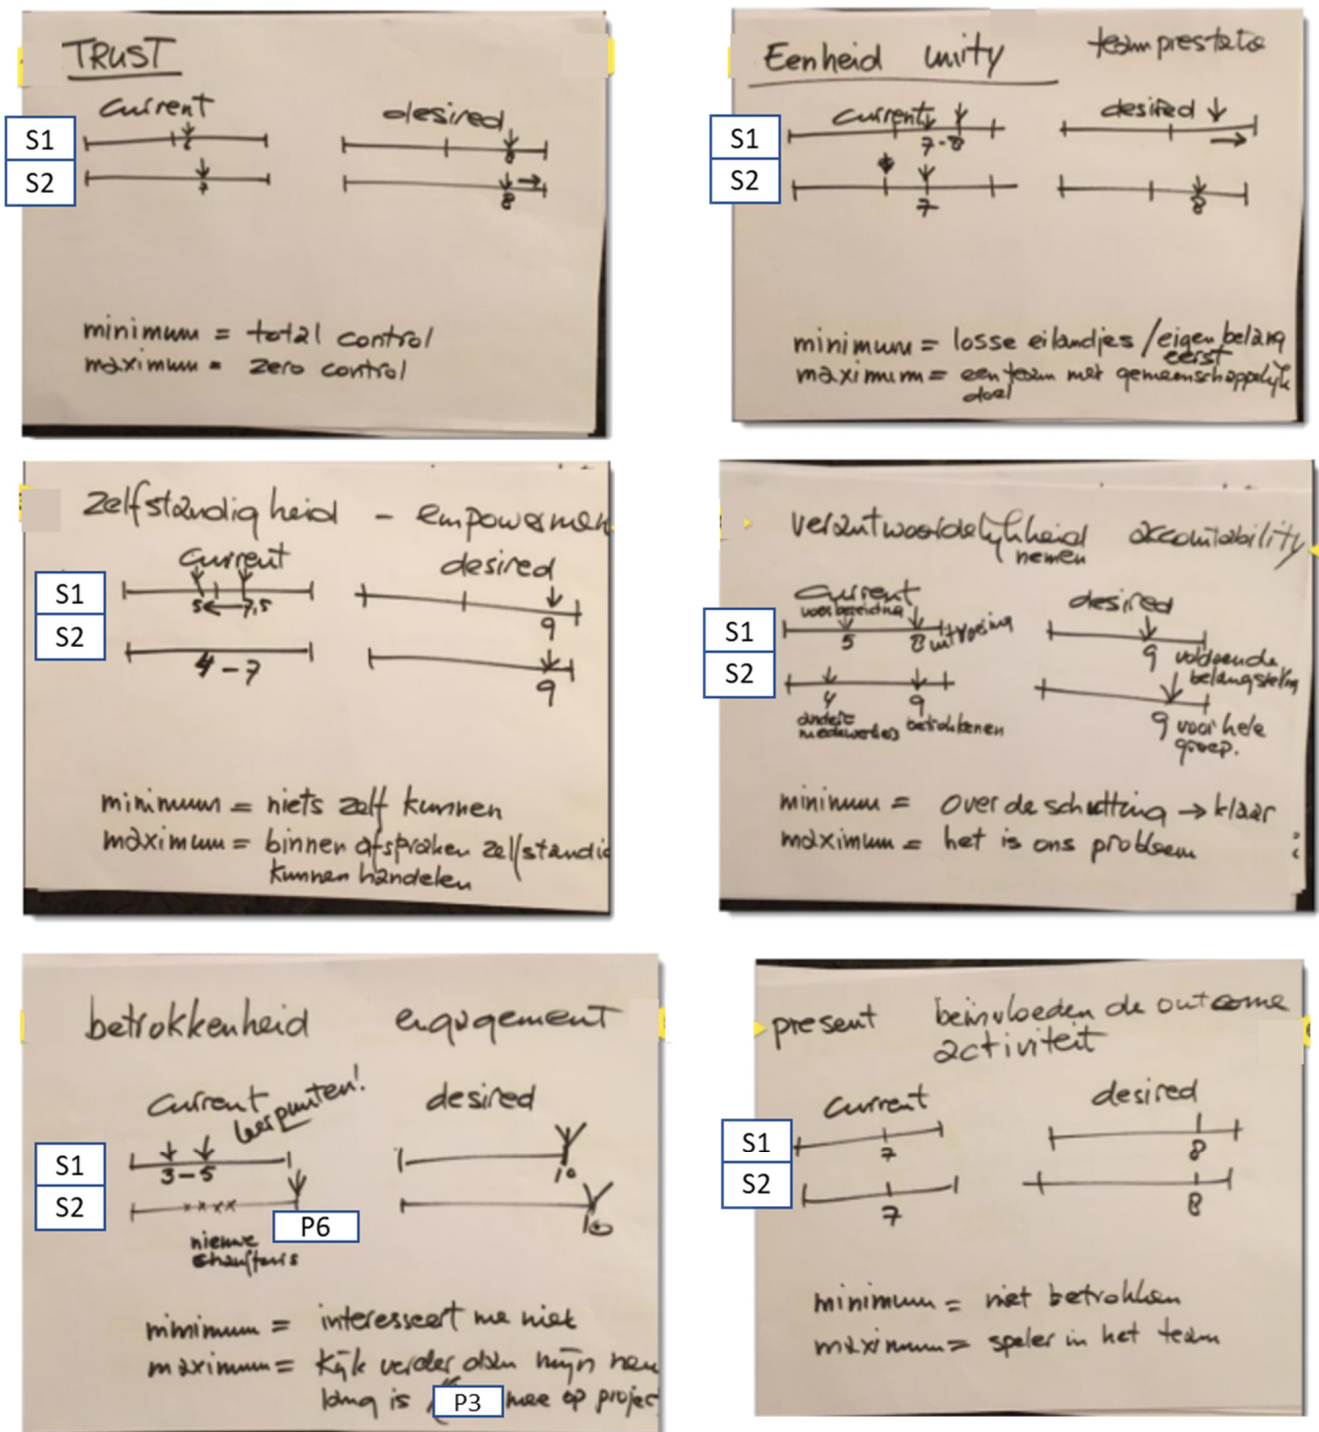 TRUST
current desired
S1 6 8
S2 7 8
minimum = total control
maximum = zero control
Eenheid unity teamprestatie
current desired
S1 7-8
S2 7 8
minimum = losse eilandjes / eigen belang
eerst
maximum = een team met gemeenschappelijk
doel
zelfstandigheid - empowermen
current desired
S1 5 7,5 9
S2 4 - 7 9
minimum = niets zelf kunnen
maximum = binnen afspraken zelfstandig
kunnen handelen
verantwoordelijkheid accountability
nemen
current desired
voorbereiding
S1 5 8 uitvoering 9 voldoende
belangstelling
S2 4 9 9 voor hele
groep.
andere
medewerkers betrokkenen
minimum = over de schutting → klaar
maximum = het is ons probleem
betrokkenheid engagement
current leerpunten! desired
S1 3-5 10
S2 xxxx 10
P6
nieuwe
chauffeurs
minimum = interesseert me niet
maximum = kijk verder dan mijn neus
lang is P3 mee op project
present beïnvloeden de outcome
activiteit
current desired
S1 7 8
S2 7 8
minimum = niet betrokken
maximum = speler in het team